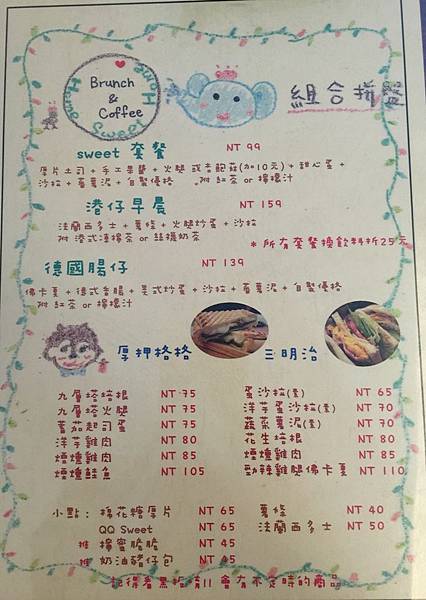 Home
Sweet
Home
Brunch
&
Coffee
組合拼盤
sweet 套餐 NT 99
厚片土司+手工果醬+火腿 或 (加10元)+甜心蛋+
沙拉+薯薯泥+自製優格 附 紅茶 or 檸檬汁
港仔早晨 NT 159
法蘭西多士+薯條+火腿炒蛋+沙拉
附 港式凍檸茶 or 絲襪奶茶
*所有套餐換飲料折25元
德國腸仔 NT 139
佛卡夏+德式香腸+美式炒蛋+沙拉+薯薯泥+自製優格
附 紅茶 or 檸檬汁
厚押格格
九層塔培根 NT 75
九層塔火腿 NT 75
蕃茄起司蛋 NT 75
洋芋雞肉 NT 80
煙燻雞肉 NT 85
煙燻鮭魚 NT 105
三明治
蛋沙拉(素) NT 65
洋芋蛋沙拉(素) NT 70
蔬菜薯泥(素) NT 70
花生培根 NT 80
煙燻雞肉 NT 85
勁辣雞腿佛卡夏 NT 110
小點: 棉花糖厚片 NT 65
QQ Sweet NT 65
推 楓蜜脆脆 NT 45
推 奶油豬仔包 NT 45
薯條 NT 40
法蘭西多士 NT 50
記得看黑板喔!! 會有不定時的商品